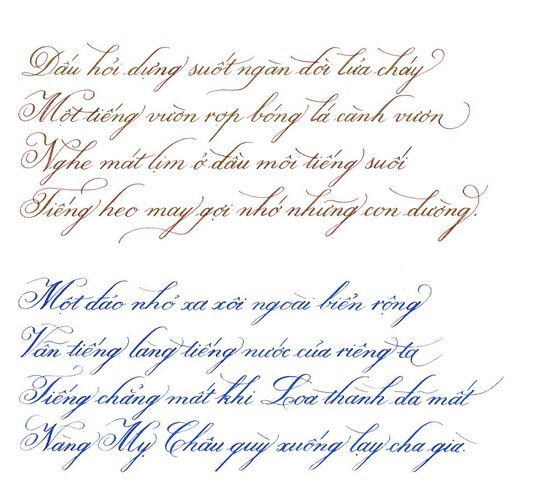 Dấu hỏi dựng suốt ngàn đời lửa cháy
Một tiếng vườn rợp bóng lá cành vươn
Nghe mát lịm ở đầu môi tiếng suối
Tiếng heo may gợi nhớ những con đường.
Một đảo nhỏ xa xôi ngoài biển rộng
Vẫn tiếng làng tiếng nước của riêng ta
Tiếng chẳng mất khi Loa thành đã mất
Nàng Mỵ Châu quỳ xuống lạy cha già.